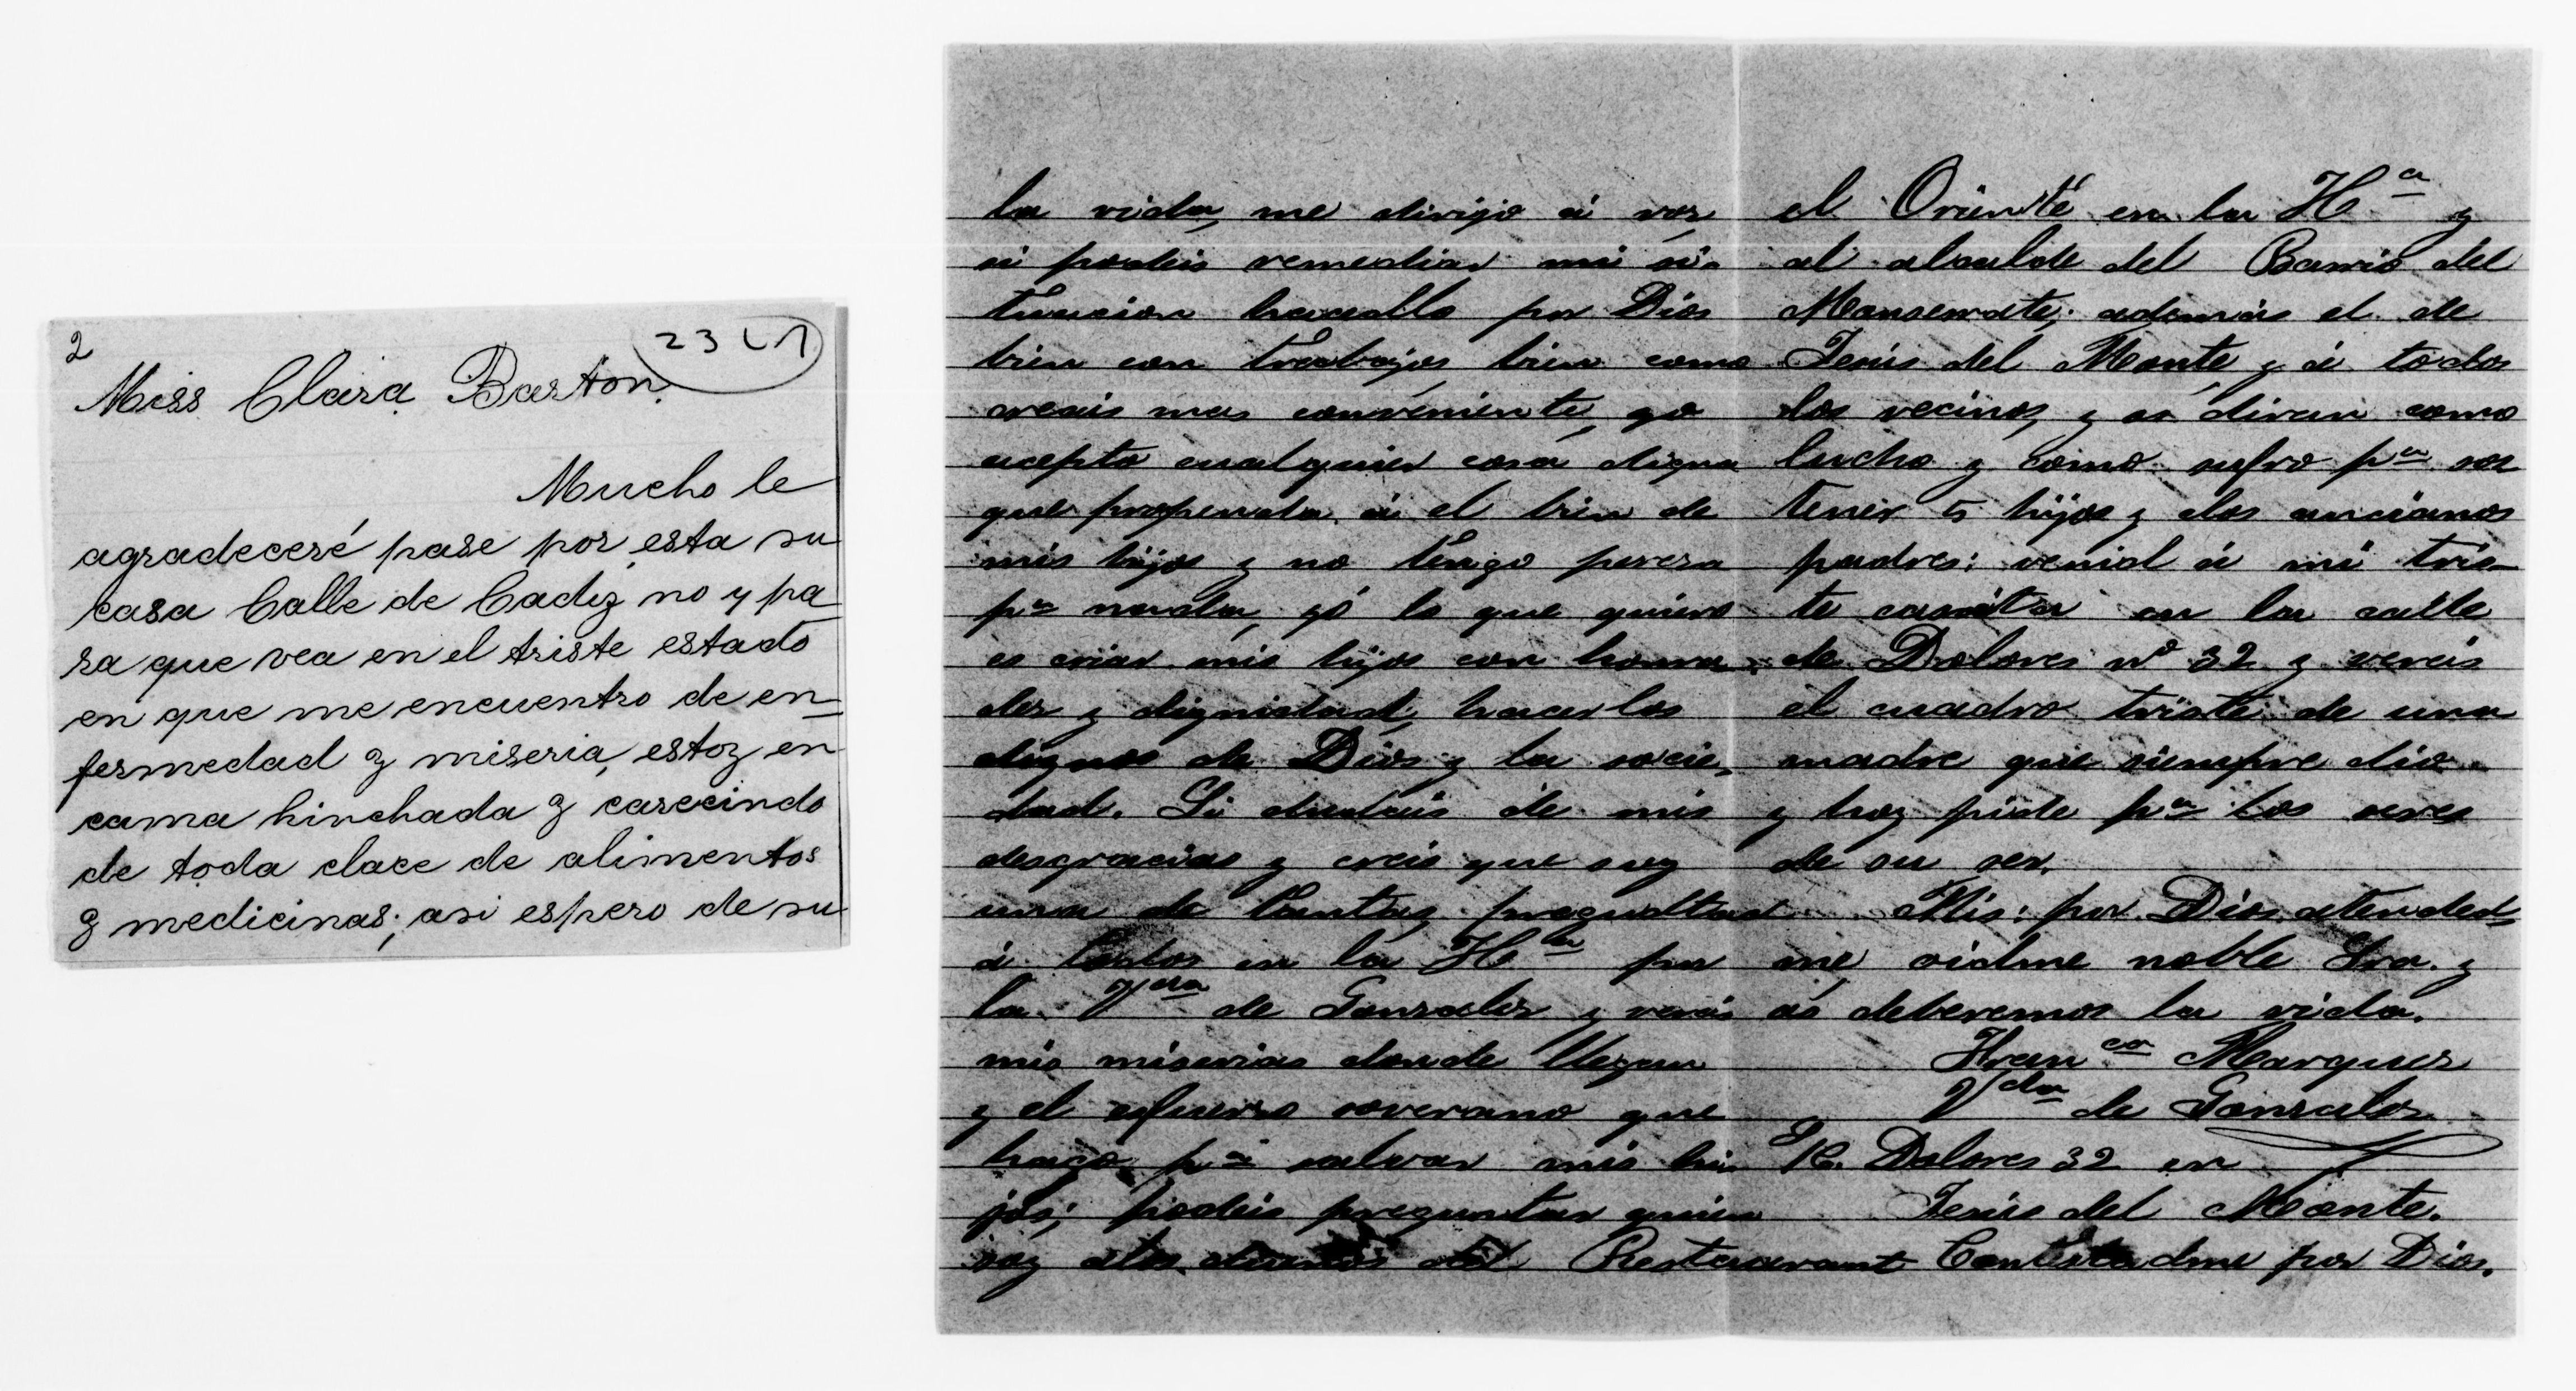 2
23
Miss Clara Barton.
Mucho le
agradeceré pase por esta su
casa Calle de Cadiz no y pa
ra que vea en el triste estado
en que me encuentro de en_
fermedad y miseria, estoy en
cama hinchada y carecindo
de toda clace de alimentos
y medicinas; asi espero de su
la vida, me dirijo á vos,
si podeis remediar mi si-
tuacion hacedlo por Dios
bien con trabajos bien como
creais mas conveniente, yo
acepto cualquier cosa digna
que propenda á el bien de
mis hijos y no tengo pereza
pª nada, yó lo que quiero
es criar mis hijos con honra-
dez y dignidad, hacerlos
dignos de Dios y la socie-
dad. Si dudais de mis
desgracias y creis que soy
una de tantas,
á todos en la Hª por
la Vda de Gonzalez y vereis
mis miserias donde llegan
y el esfuerzo soverano que
hago pª salvar mis hi-
jos; podeis preguntar quien
soy a los dueños del Restaurant
el Oriente en la Hª y
al alcalde del Barrio del
Monserrate; además el de
Jesús del Monte y á todos
los vecinos, y os diran como
lucho y como sufro pª sos
tener 5 hijos y dos ancianos
padres: venid á mi tris-
te casita en la calle
de Dolores nº 32 y vereis
el cuadro triste de una
madre que siempre dió
y hoy pide pª los seres
de su ser.
Mis: por Dios atended
me, oidme noble Sra. y
os deberemos la vida.
Franca Marquez
Vda de Gonzalez
Dolores 32 en
Jesús del Monte.
Contestadme por Dios.